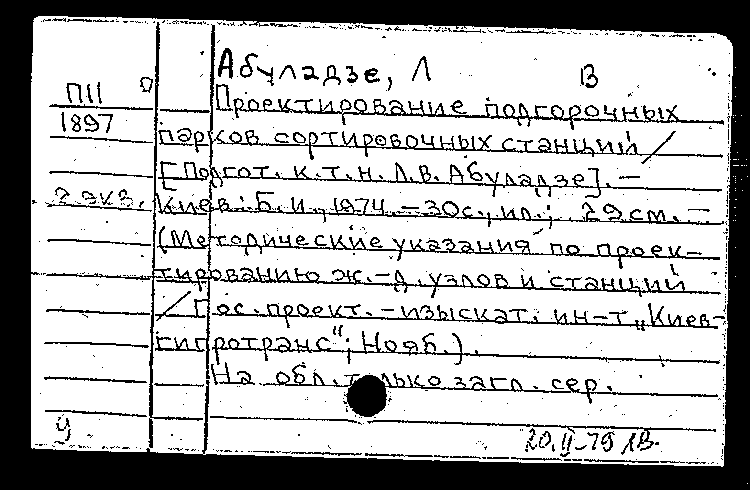 Абуладзе, Л В
П11
1897
Проектирование подгорочных
парков сортировочных станций /
[Подгот. к.т.н. Л.В. Абуладзе]. —
2 экз.
Киев: Б. и., 1974. — 30с., ил.; 29см. —
(Методические указания по проек-
тированию ж.-д. узлов и станций
/ Гос. проект.-изыскат. ин-т „Киев-
гипротранс"; Нояб.).
На обл. только загл. сер.
у
20.II-79 ЛВ.